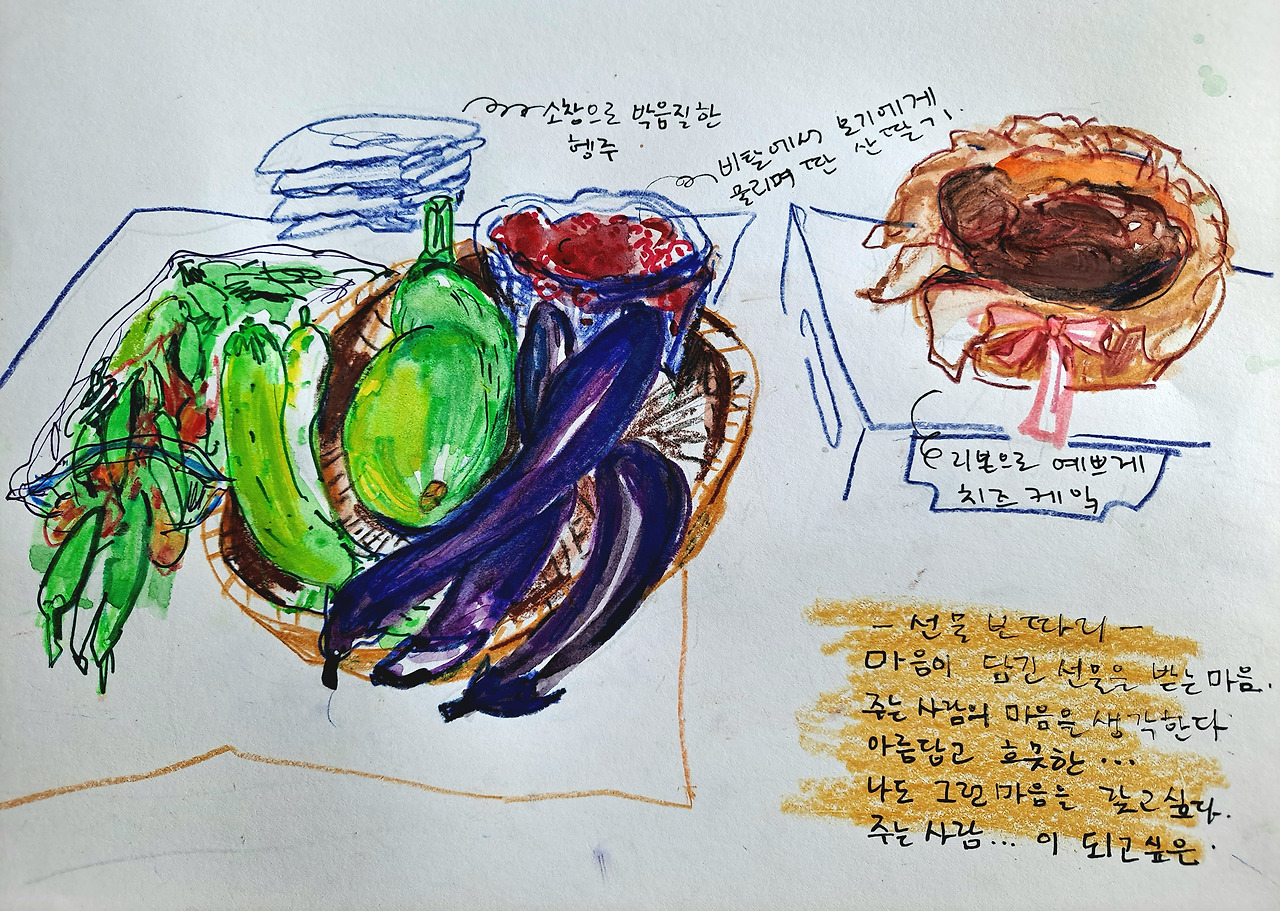 소창으로 박음질한
헹주
비탈에서 모기에게
물리며 딴 산딸기.
리본으로 예쁘게
치즈케익
- 선물 보따리 -
마음이 담긴 선물을 받는 마음.
주는 사람의 마음을 생각한다
아름답고 흐뭇한 ...
나도 그런 마음을 갖고싶다.
주는 사람... 이 되고싶은.